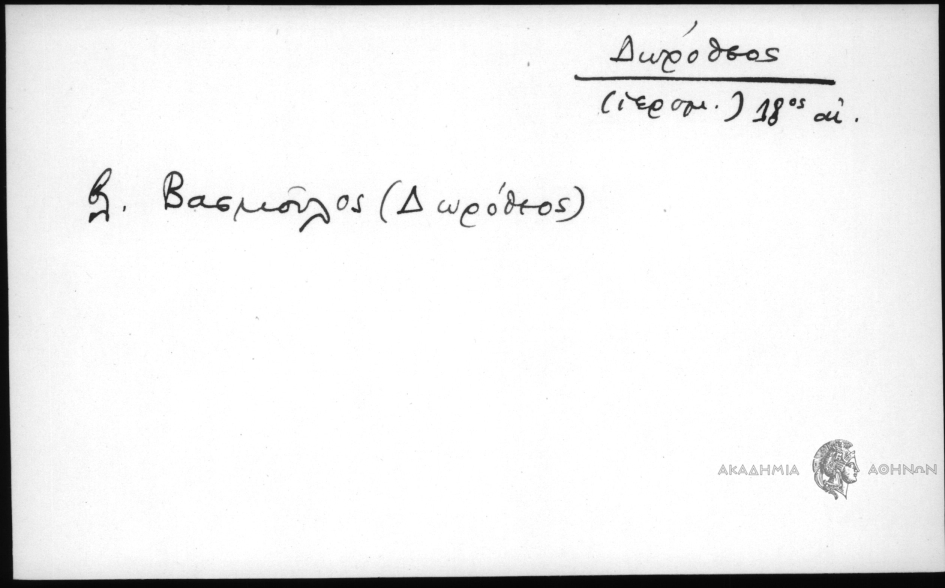 Δωρόθεος
(ἱερομ.) 18ος αἰ.
βλ. Βασμοῦλος (Δωρόθεος)
ΑΚΑΔΗΜΙΑ ΑΘΗΝΩΝ